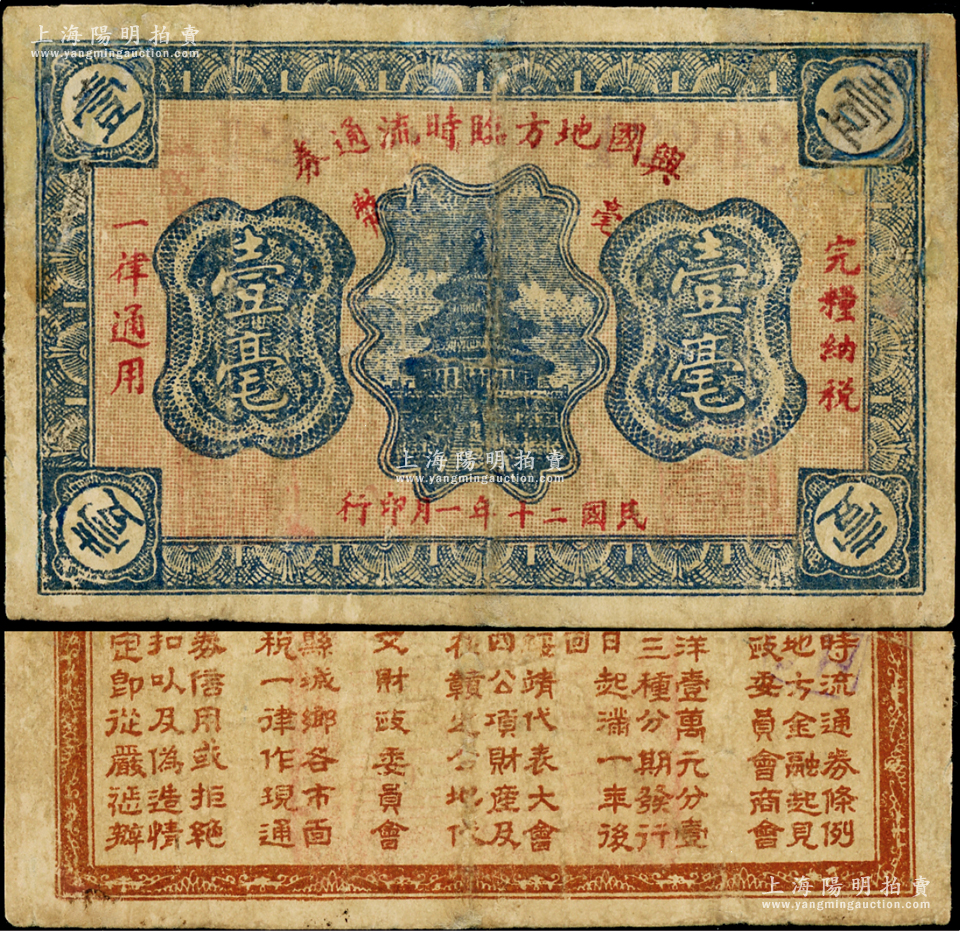 上海陽明拍賣
www.yangmingauction.com
壹
壹
興國地方臨時流通券
毫幣
完糧納稅
壹毫
壹毫
一律通用
上海陽明拍賣
www.yangmingauction.com
民國二十年一月印行
壹
壹
時流通券條例
地方金融起見
政委員會商會
洋壹萬元分壹
三種分期發行
日起滿一年後
回
綏靖代表大會
四公項財產及
贛
公地代
財政委員會
縣城鄉各市面
稅一律作現通
券信用或拒絕
扣以及偽造情
定即從嚴懲辦
上海陽明拍賣
www.yangmingauction.com